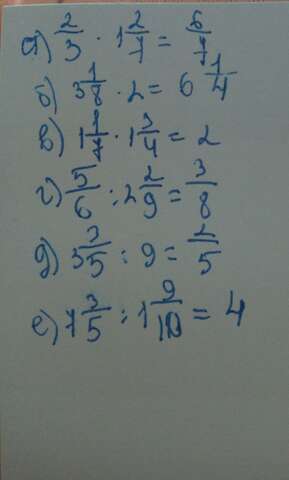 а) 2/3 · 1 2/7 = 6/7
б) 3 1/8 · 2 = 6 1/4
в) 1 1/7 · 1 3/4 = 2
г) 5/6 : 2 2/9 = 3/8
д) 3 3/5 : 9 = 2/5
е) 7 3/5 : 1 9/10 = 4